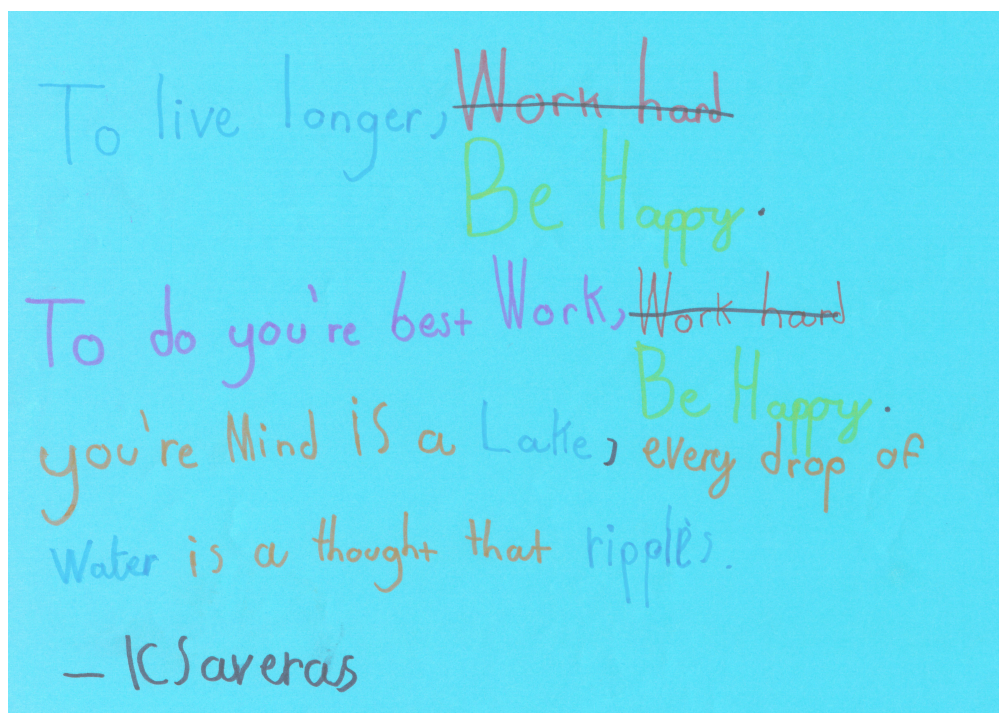 To live longer, Work hard
Be Happy.
To do you're best Work, Work hard
Be Happy.
you're Mind is a Lake, every drop of
Water is a thought that ripple's.
- ICSaveras